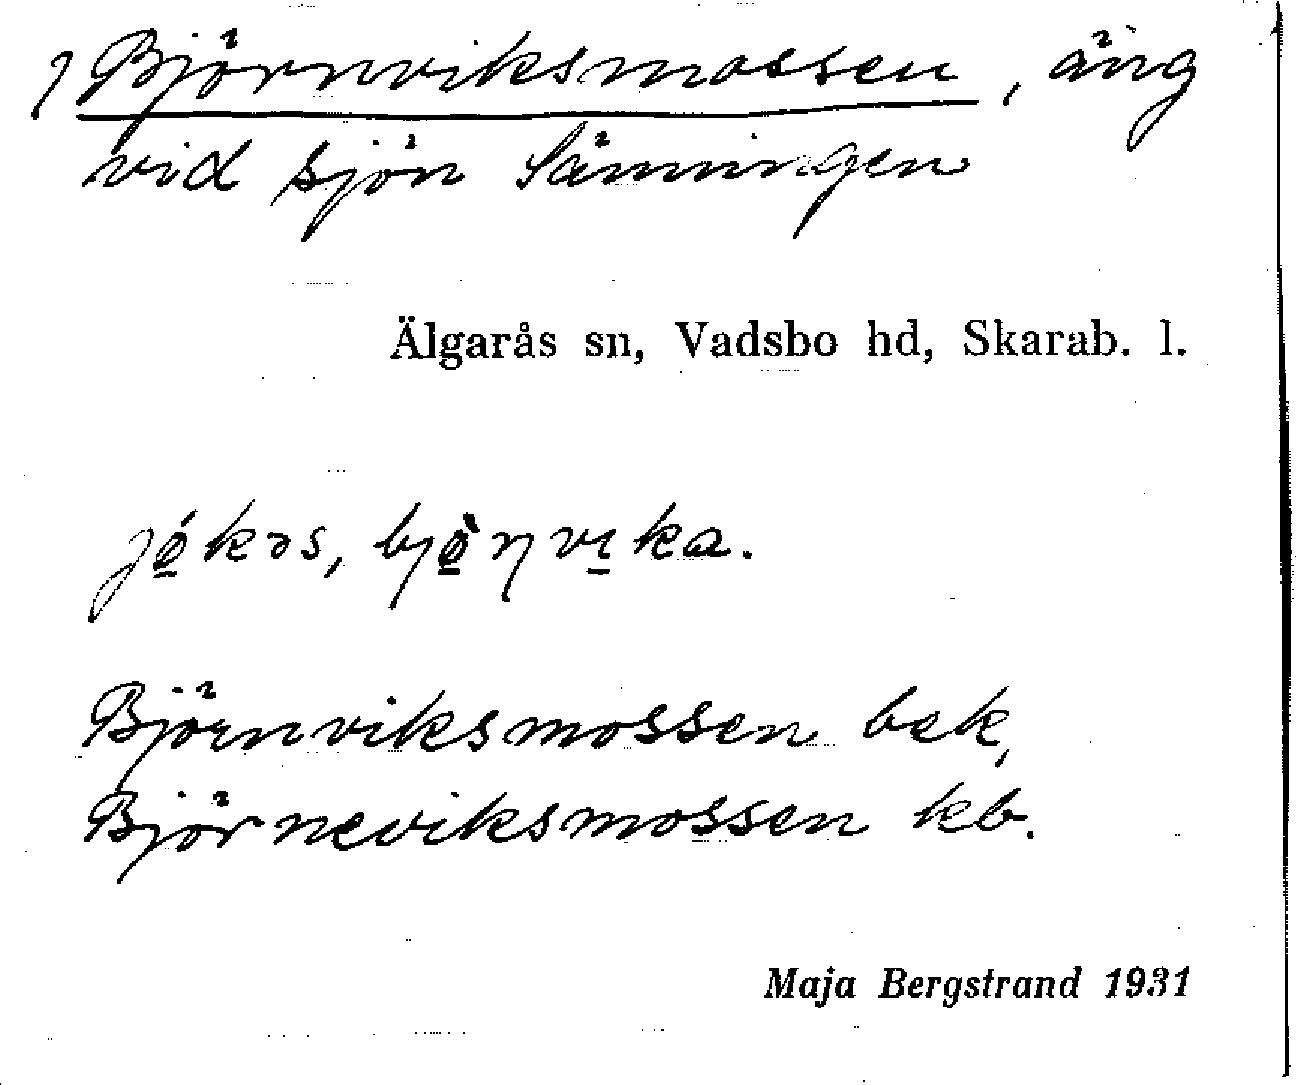 ] Björnviksmossen, äng
vid sjön Sänningen
Älgarås sn, Vadsbo hd, Skarab. l.
jǿ̱kəs, bjø̱̀ɳvi̱ka.
Björnviksmossen bek,
Björneviksmossen kb.
Maja Bergstrand 1931